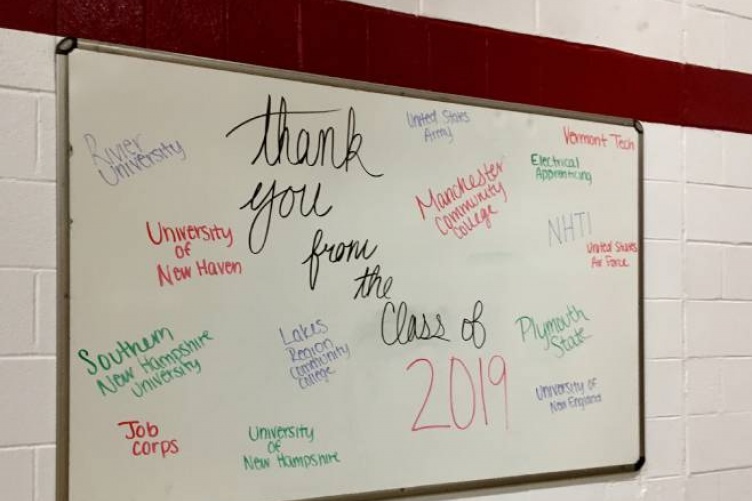 thank
you
from
the
Class of
2019
River
University
United States
Army
Vermont Tech
Electrical
Apprenticing
Manchester
Community
College
NHTI
United States
Air Force
University
of
New Haven
Southern
New Hampshire
University
Lakes
Region
Community
College
Plymouth
State
University of
New England
Job
Corps
University
of
New Hampshire